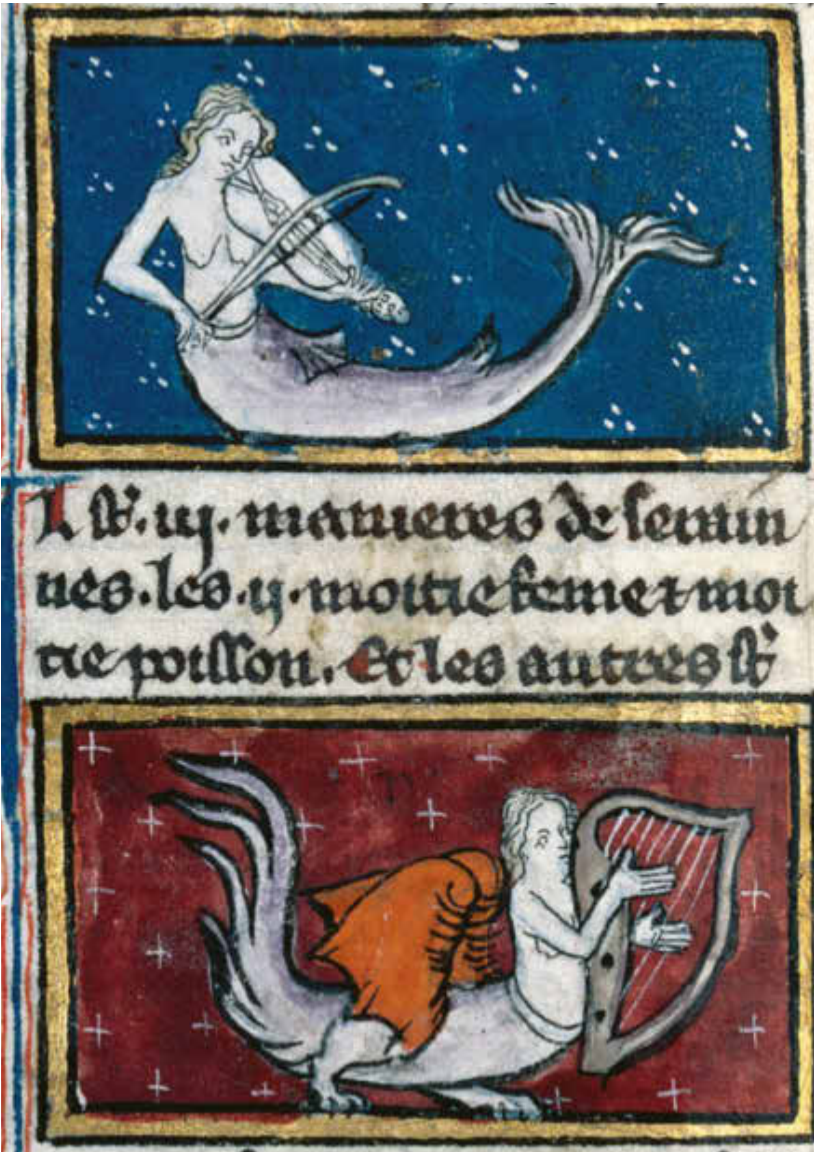 I st̃ .iij. manieres de serain
nes .les .ij. moitie feme ⁊ moi
tie poisson. Et les autres st̃